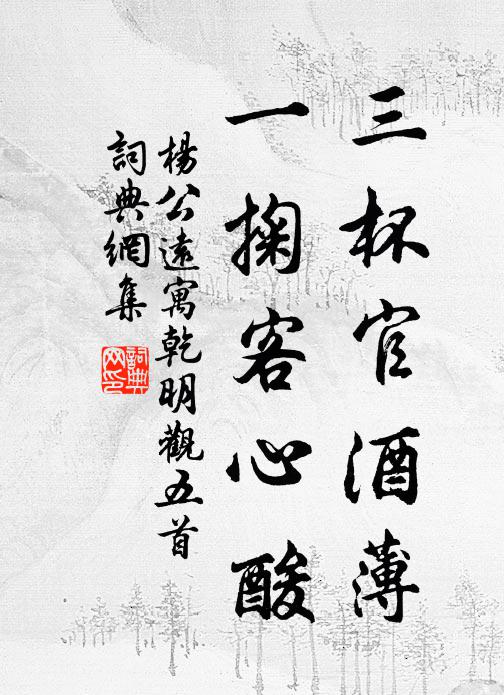 三杯官酒薄
一掬客心酸
楊公遠寓乾明觀五首
詞典網集
詞典网印